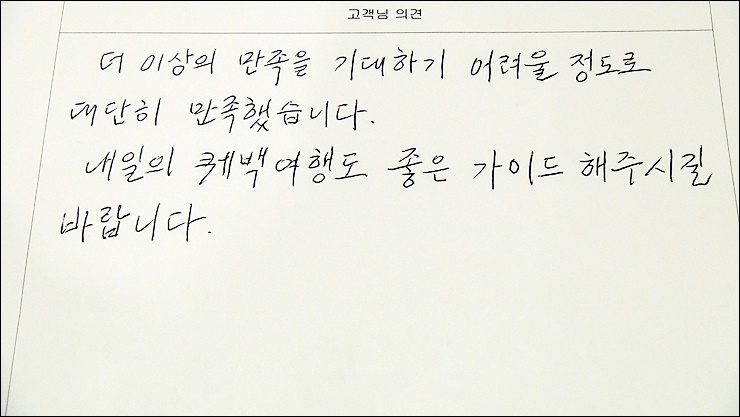 고객님 의견
더 이상의 만족을 기대하기 어려울 정도로
대단히 만족했습니다.
내일의 퀘백여행도 좋은 가이드 해주시길
바랍니다.